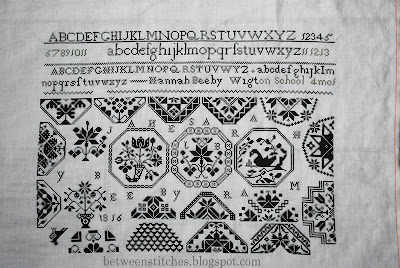 ABCDEFGHIJKLMNOPQRSTUVWXYZ 12345
67891011 abcdefghijklmopqrsftuvwxyz 111213
ABCDEFGHIJKLMNOPQRSTUVWYZ abcdefghijklm
nopqrsftuvwxyz Hannah Beeby Wigton School 4mo
J H E S A R A H
B E E B Y R A M
1816
betweenstitches.blogspot.com